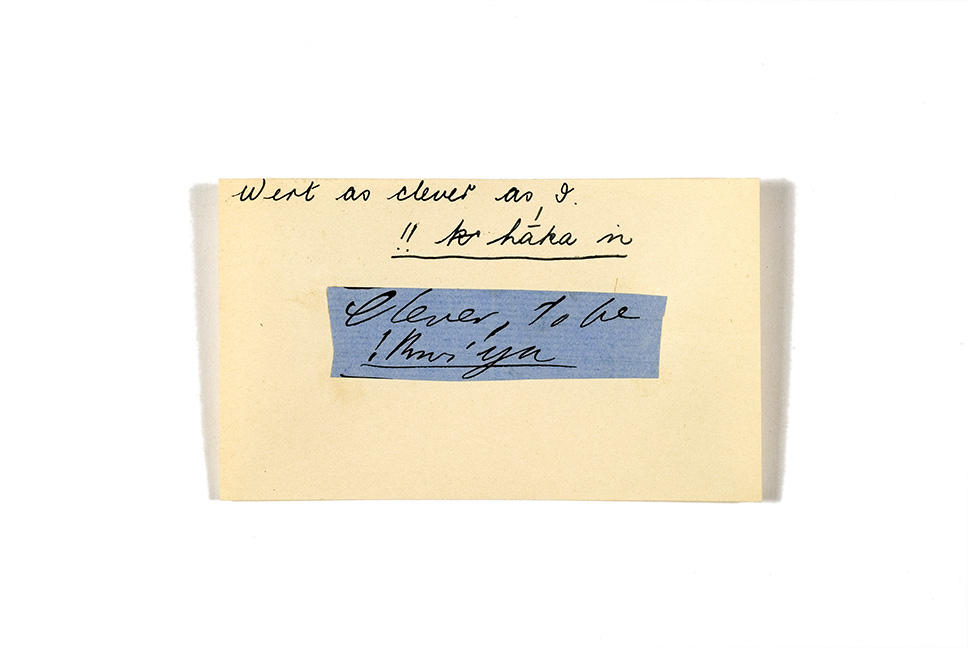 Wert as clever as, I.
!! k háka n
Clever, to be
!kwi'ya